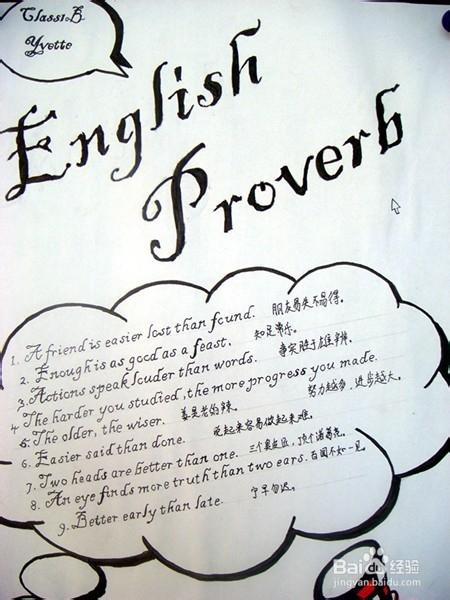 Class1B
Yvette
English
Proverb
1. A friend is easier lost than found. 朋友易失不易得。
2. Enough is as good as a feast. 知足常乐。
3. Actions speak louder than words. 事实胜于雄辩。
4 The harder you studied, the more progress you made.
努力越多,进步越大。
5. The older, the wiser. 姜是老的辣。
6. Easier said than done. 说起来容易做起来难。
7. Two heads are better than one. 三个臭皮匠,顶个诸葛亮。
8. An eye finds more truth than two ears. 百闻不如一见。
9. Better early than late. 宁早勿迟。
Baidu 经验
jingyan.baidu.com